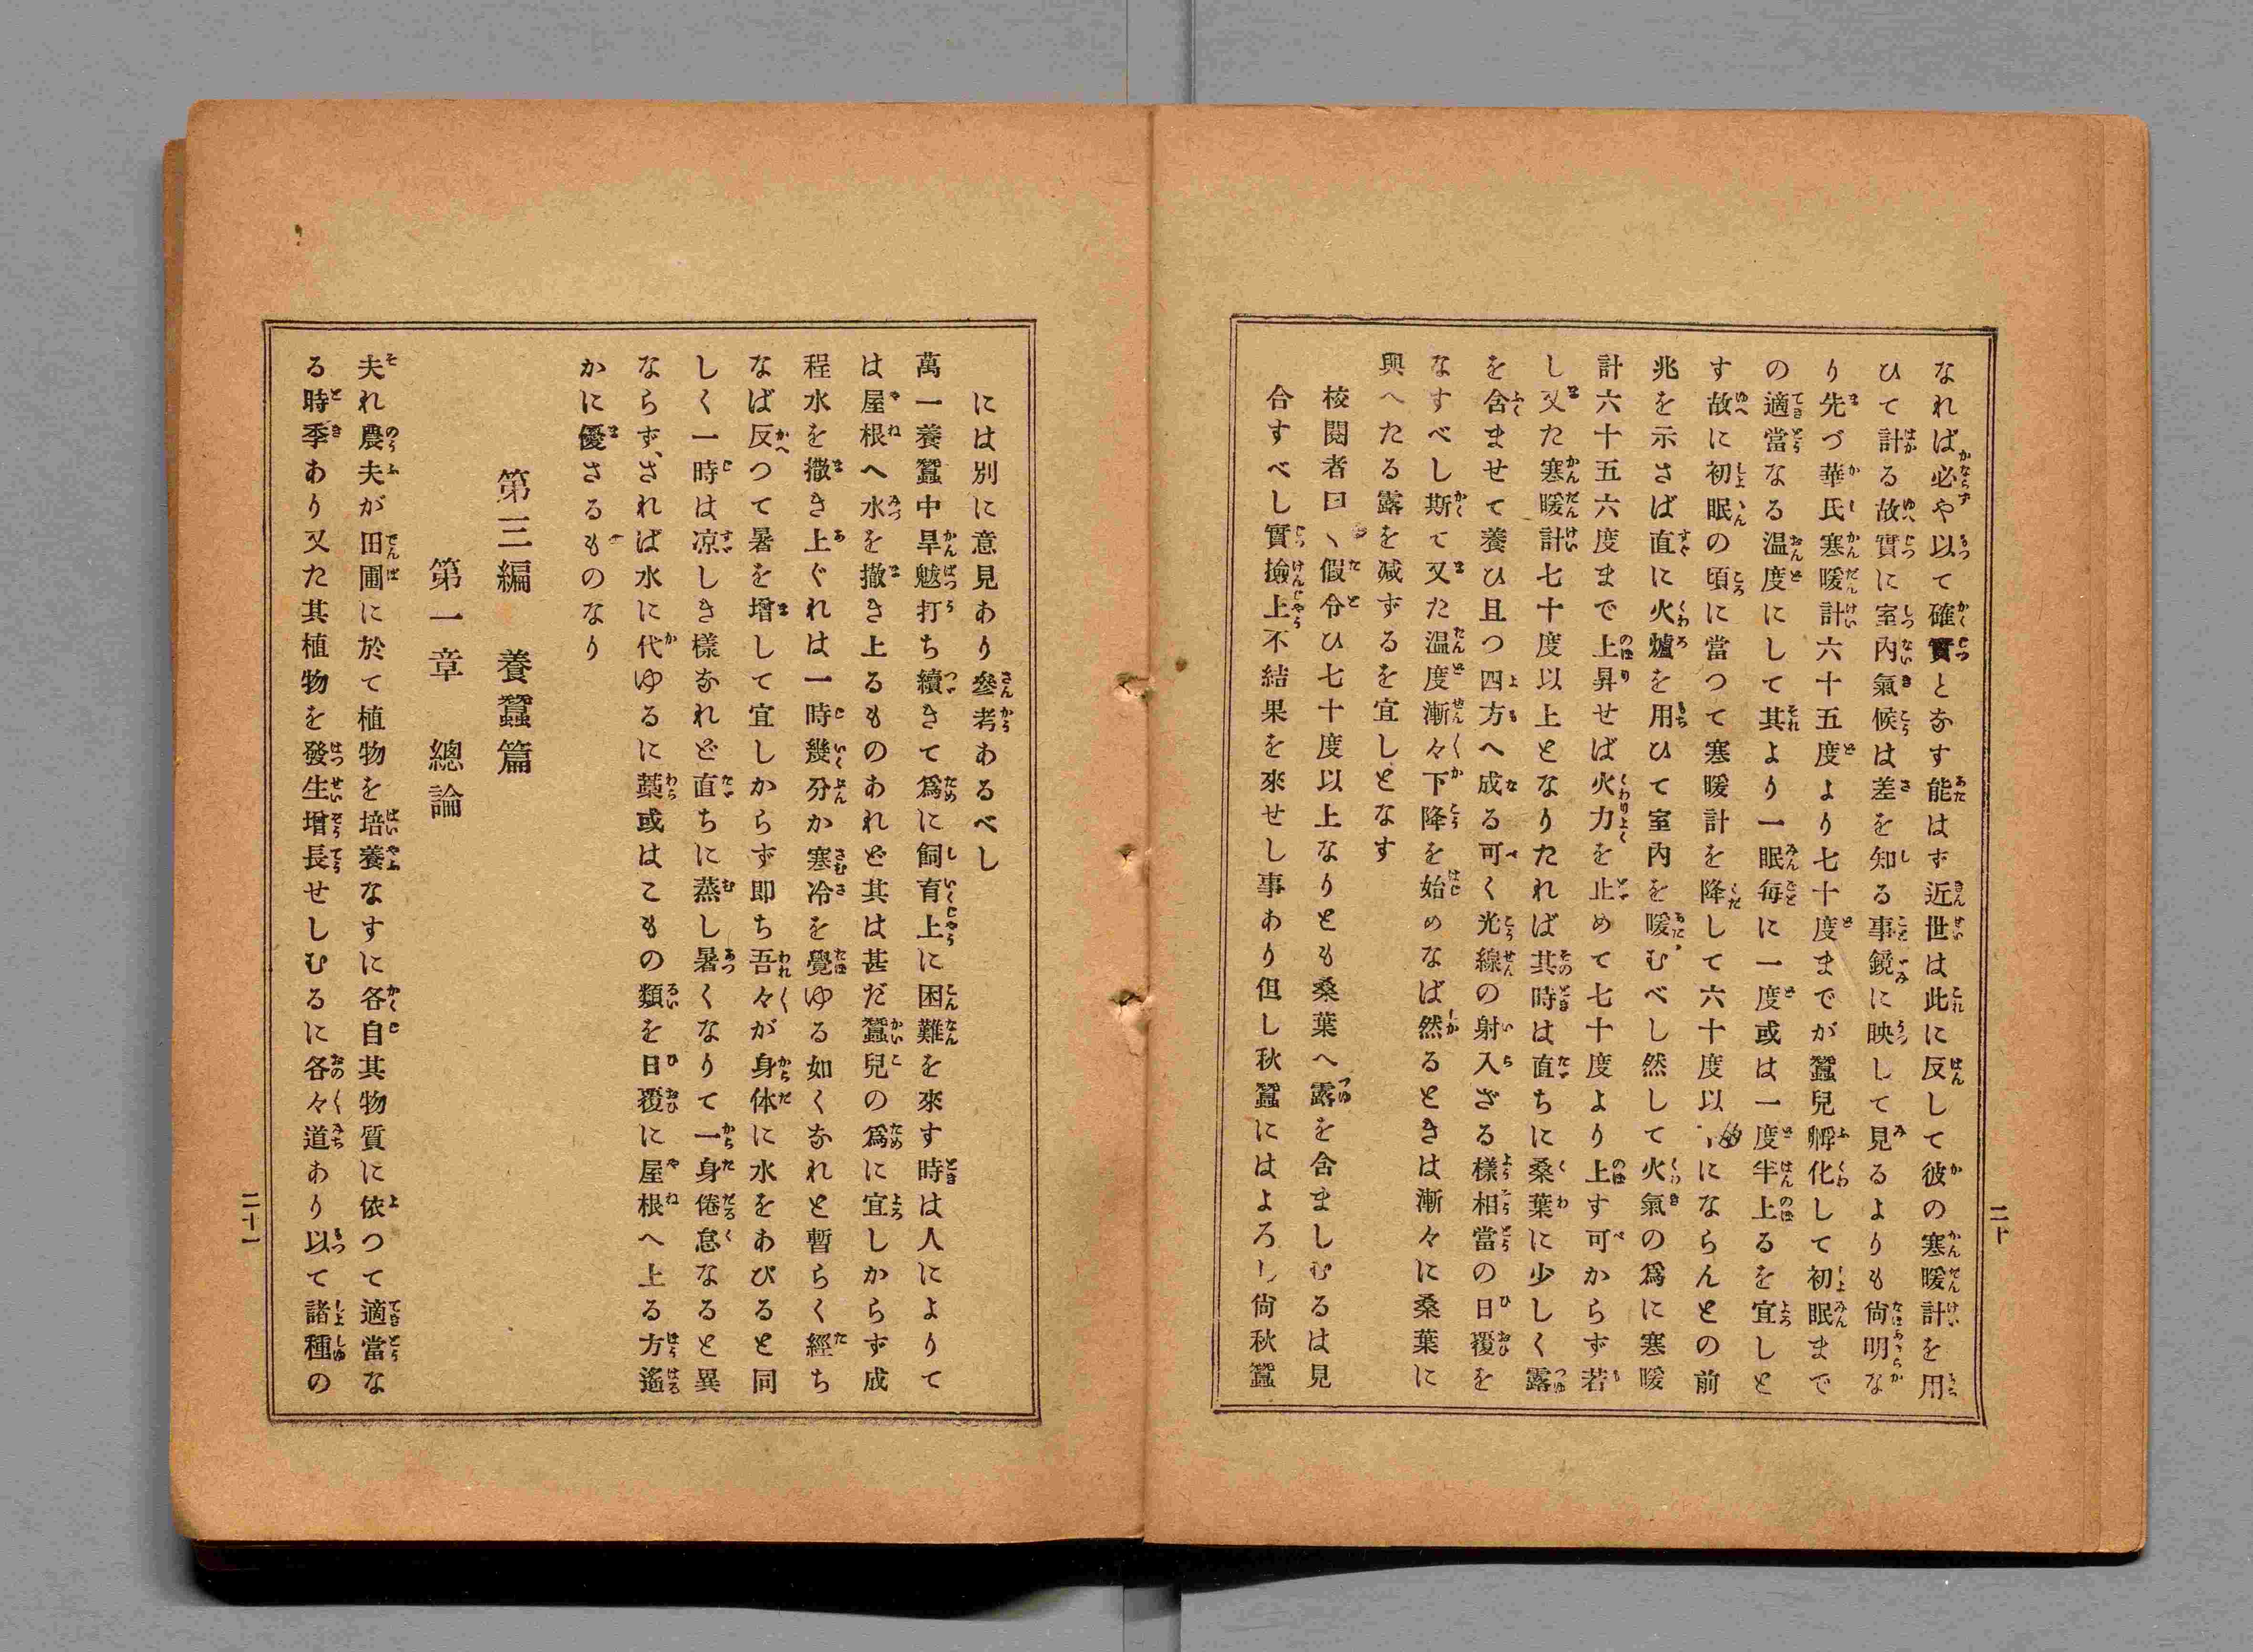 なれば必や以て確實となす能はず近世は此に反して彼の寒暖計を用
ひて計る故實に室內氣候は差を知る事鏡に映して見るよりも尙明な
り先づ華氏寒暖計六十五度より七十度までが蠶兒孵化して初眠まで
の適當なる温度にして其より一眠每に一度或は一度半上るを宜しと
す故に初眠の頃に當つて寒暖計を降して六十度以にならんとの前
兆を示さば直に火爐を用ひて室內を暖むべし然して火氣の爲に寒暖
計六十五六度まで上昇せば火力を止めて七十度より上す可からず若
し又た寒暖計七十度以上となりたれば其時は直ちに桑葉に少しく露
を含ませて養ひ且つ四方へ成る可く光線の射入ざる樣相當の日覆を
なすべし斯て又た温度漸々下降を始めなば然るときは漸々に桑葉に
興へたる露を减ずるを宜しとなす
校閱者曰く假令ひ七十度以上なりとも桑葉へ露を含ましむるは見
合すべし實撿上不結果を來せし事あり但し秋蠶にはよろし尙秋蠶
二十
には別に意見あり參考あるべし
萬一養蠶中旱魃打ち續きて爲に飼育上に困難を來す時は人によりて
は屋根へ水を撒き上るものあれど其は甚だ蠶兒の爲に宜しからず成
程水を撒き上ぐれは一時幾分か寒冷を覺ゆる如くなれと暫らく經ち
なば反つて暑を增して宜しからず即ち吾々が身体に水をあびると同
しく一時は凉しき樣なれど直ちに蒸し暑くなりて一身倦怠なると異
ならず、されば水に代ゆるに藁或はこもの類を日覆に屋根へ上る方遙
かに優さるものなり
第三編　養蠶篇
第一章　總論
夫れ農夫が田圃に於て植物を培養なすに各自其物質に依つて適當な
る時季あり又た其植物を發生增長せしむるに各々道あり以て諸種の
二十一